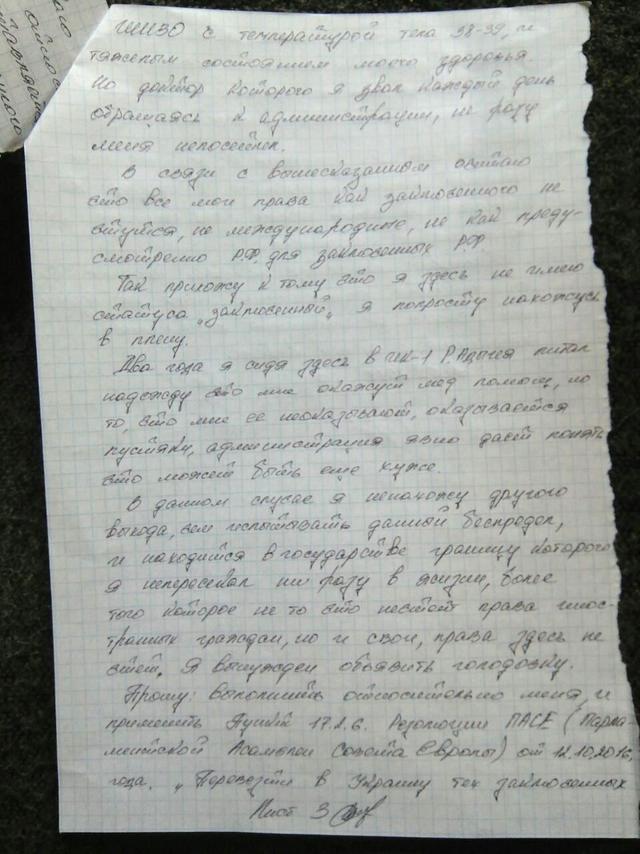 ШИЗО с температурой тела 38-39, и
тяжелым состоянием моего здоровья.
Но доктор которого я звал каждый день
обращаясь к администрации, не разу
меня непосетил.
В связи с вышесказанным
что все мои права как заключенного не
чтутся, не международные, не как преду-
смотренно Р.Ф. для заключенных Р.Ф.
Так приложу к тому что я здесь не имею
статуса „заключенный„ я попросту нахожусь
в плену.
Два года я сидя здесь в ИК-1 Р Адыгея питал
надежду что мне окажут мед помощь, но
то, что мне ее неоказывают, оказывается
пустяки, администрация явно дает понять
что может быть еще хуже.
В данном случае я ненахожу другого
выхода, чем испытывать данный беспредел,
и находится в государстве границу которого
я непересекал ни разу в жизни, более
того которое не то что нечтет права инос-
транных граждан, но и свои, права здесь не
чтет. Я вынужден объявить голодовку.
Прошу: выполнить относительно меня, и
применить Пункт 17.2.6. Резолюции ПАСЕ (Парла
ментской Асамблеи Совета Европы) от 12.10.2016,
года. „Перевезти в Украину тех заключенных
Лист 3